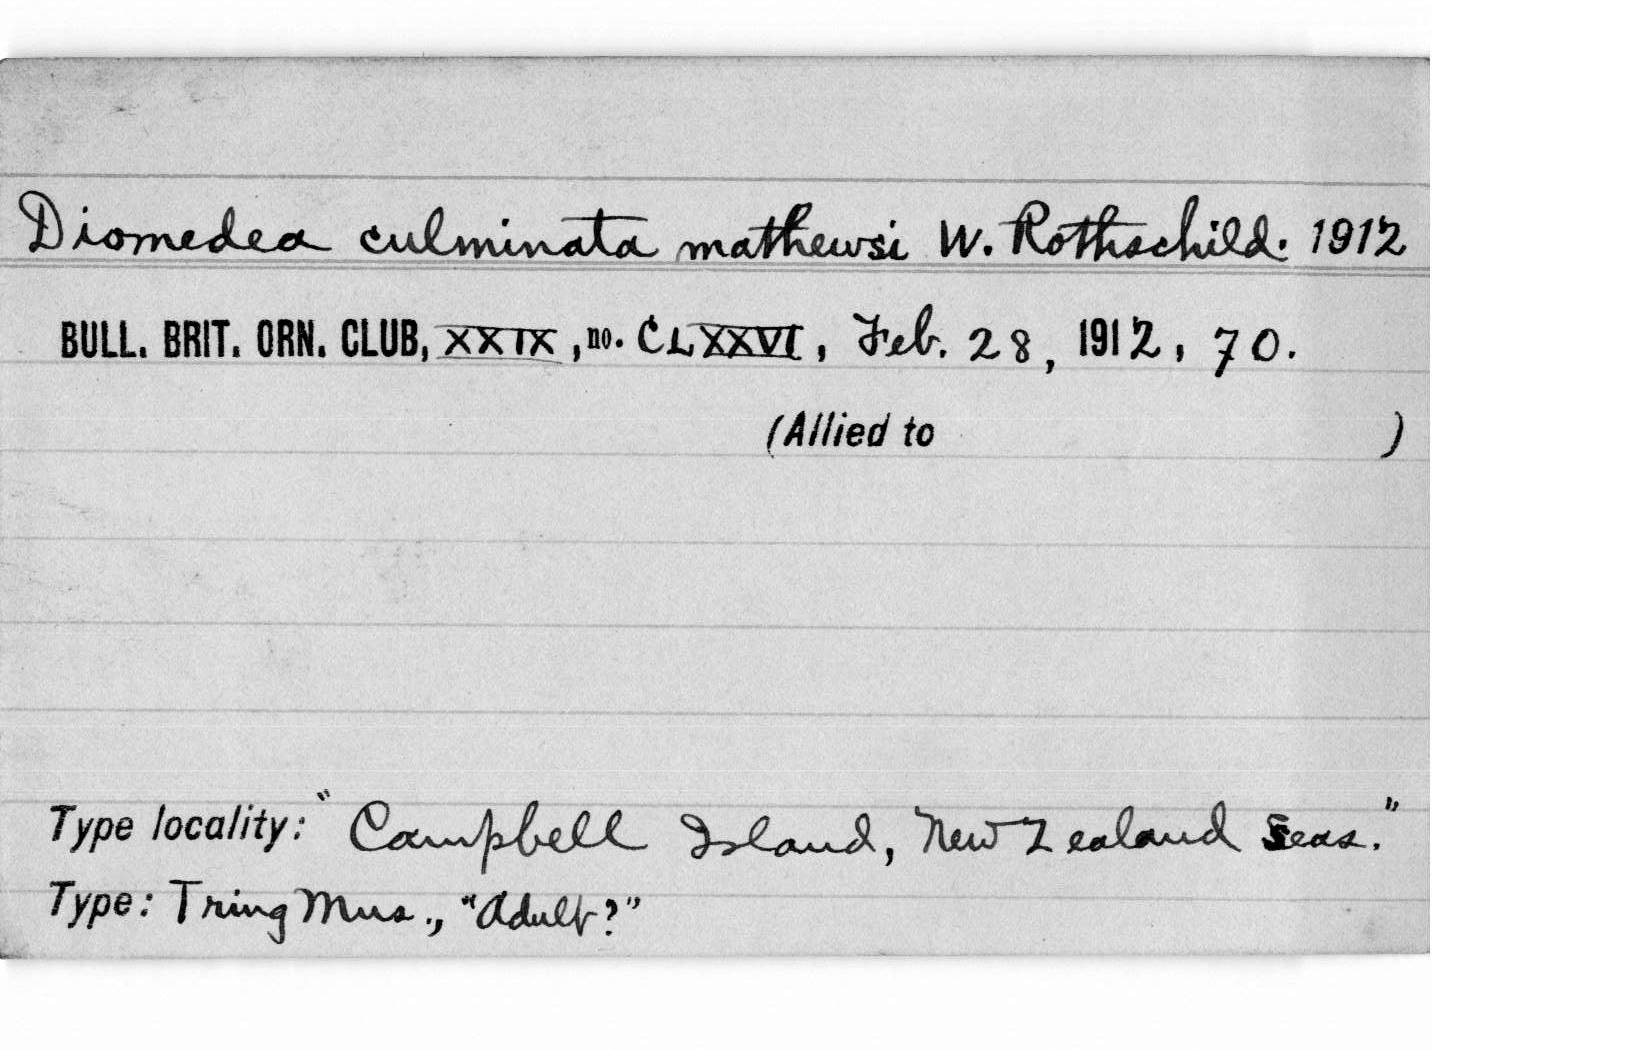 Diomedea culminata mathewsi W. Rothschild. 1912
BULL. BRIT. ORN. CLUB, XXIX, no. CLXXVI, Feb. 28, 1912, 70.
(Allied to )
Type locality: "Campbell Island, New Zealand Seas."
Type: Tring Mus., "Adult?"